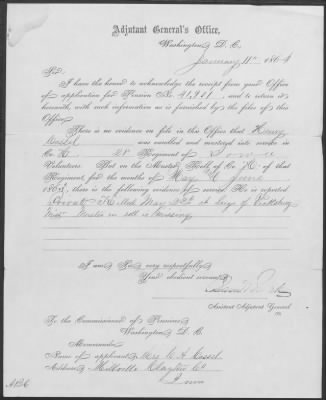 Adjutant General's Office,
Washington, D. C.,
January 11th 1864
Sir:
I have the honor to acknowledge the receipt from your Office
of application for Pension No. 41,921, and to return it
herewith, with such information as is furnished by the files of this
Office.
There is no evidence on file in this Office that Henry
Cassel was enrolled and mustered into service in
Co. K, 28" Regiment of Iowa
Volunteers. But on the Muster Roll of Co. K of that
Regiment, for the months of May & June
1863, there is the following evidence of service. He is reported
Private Killed May 22d at Siege of Vicksburg
Miss. Muster in roll is missing
I am, Sir, very respectfully,
Your obedient servant,
Assistant Adjutant General
To the Commissioner of Pensions,
Washington, D. C.
Memoranda:
Name of applicant, Mrs. A. Cassel
Address, Clayton Co
Iowa